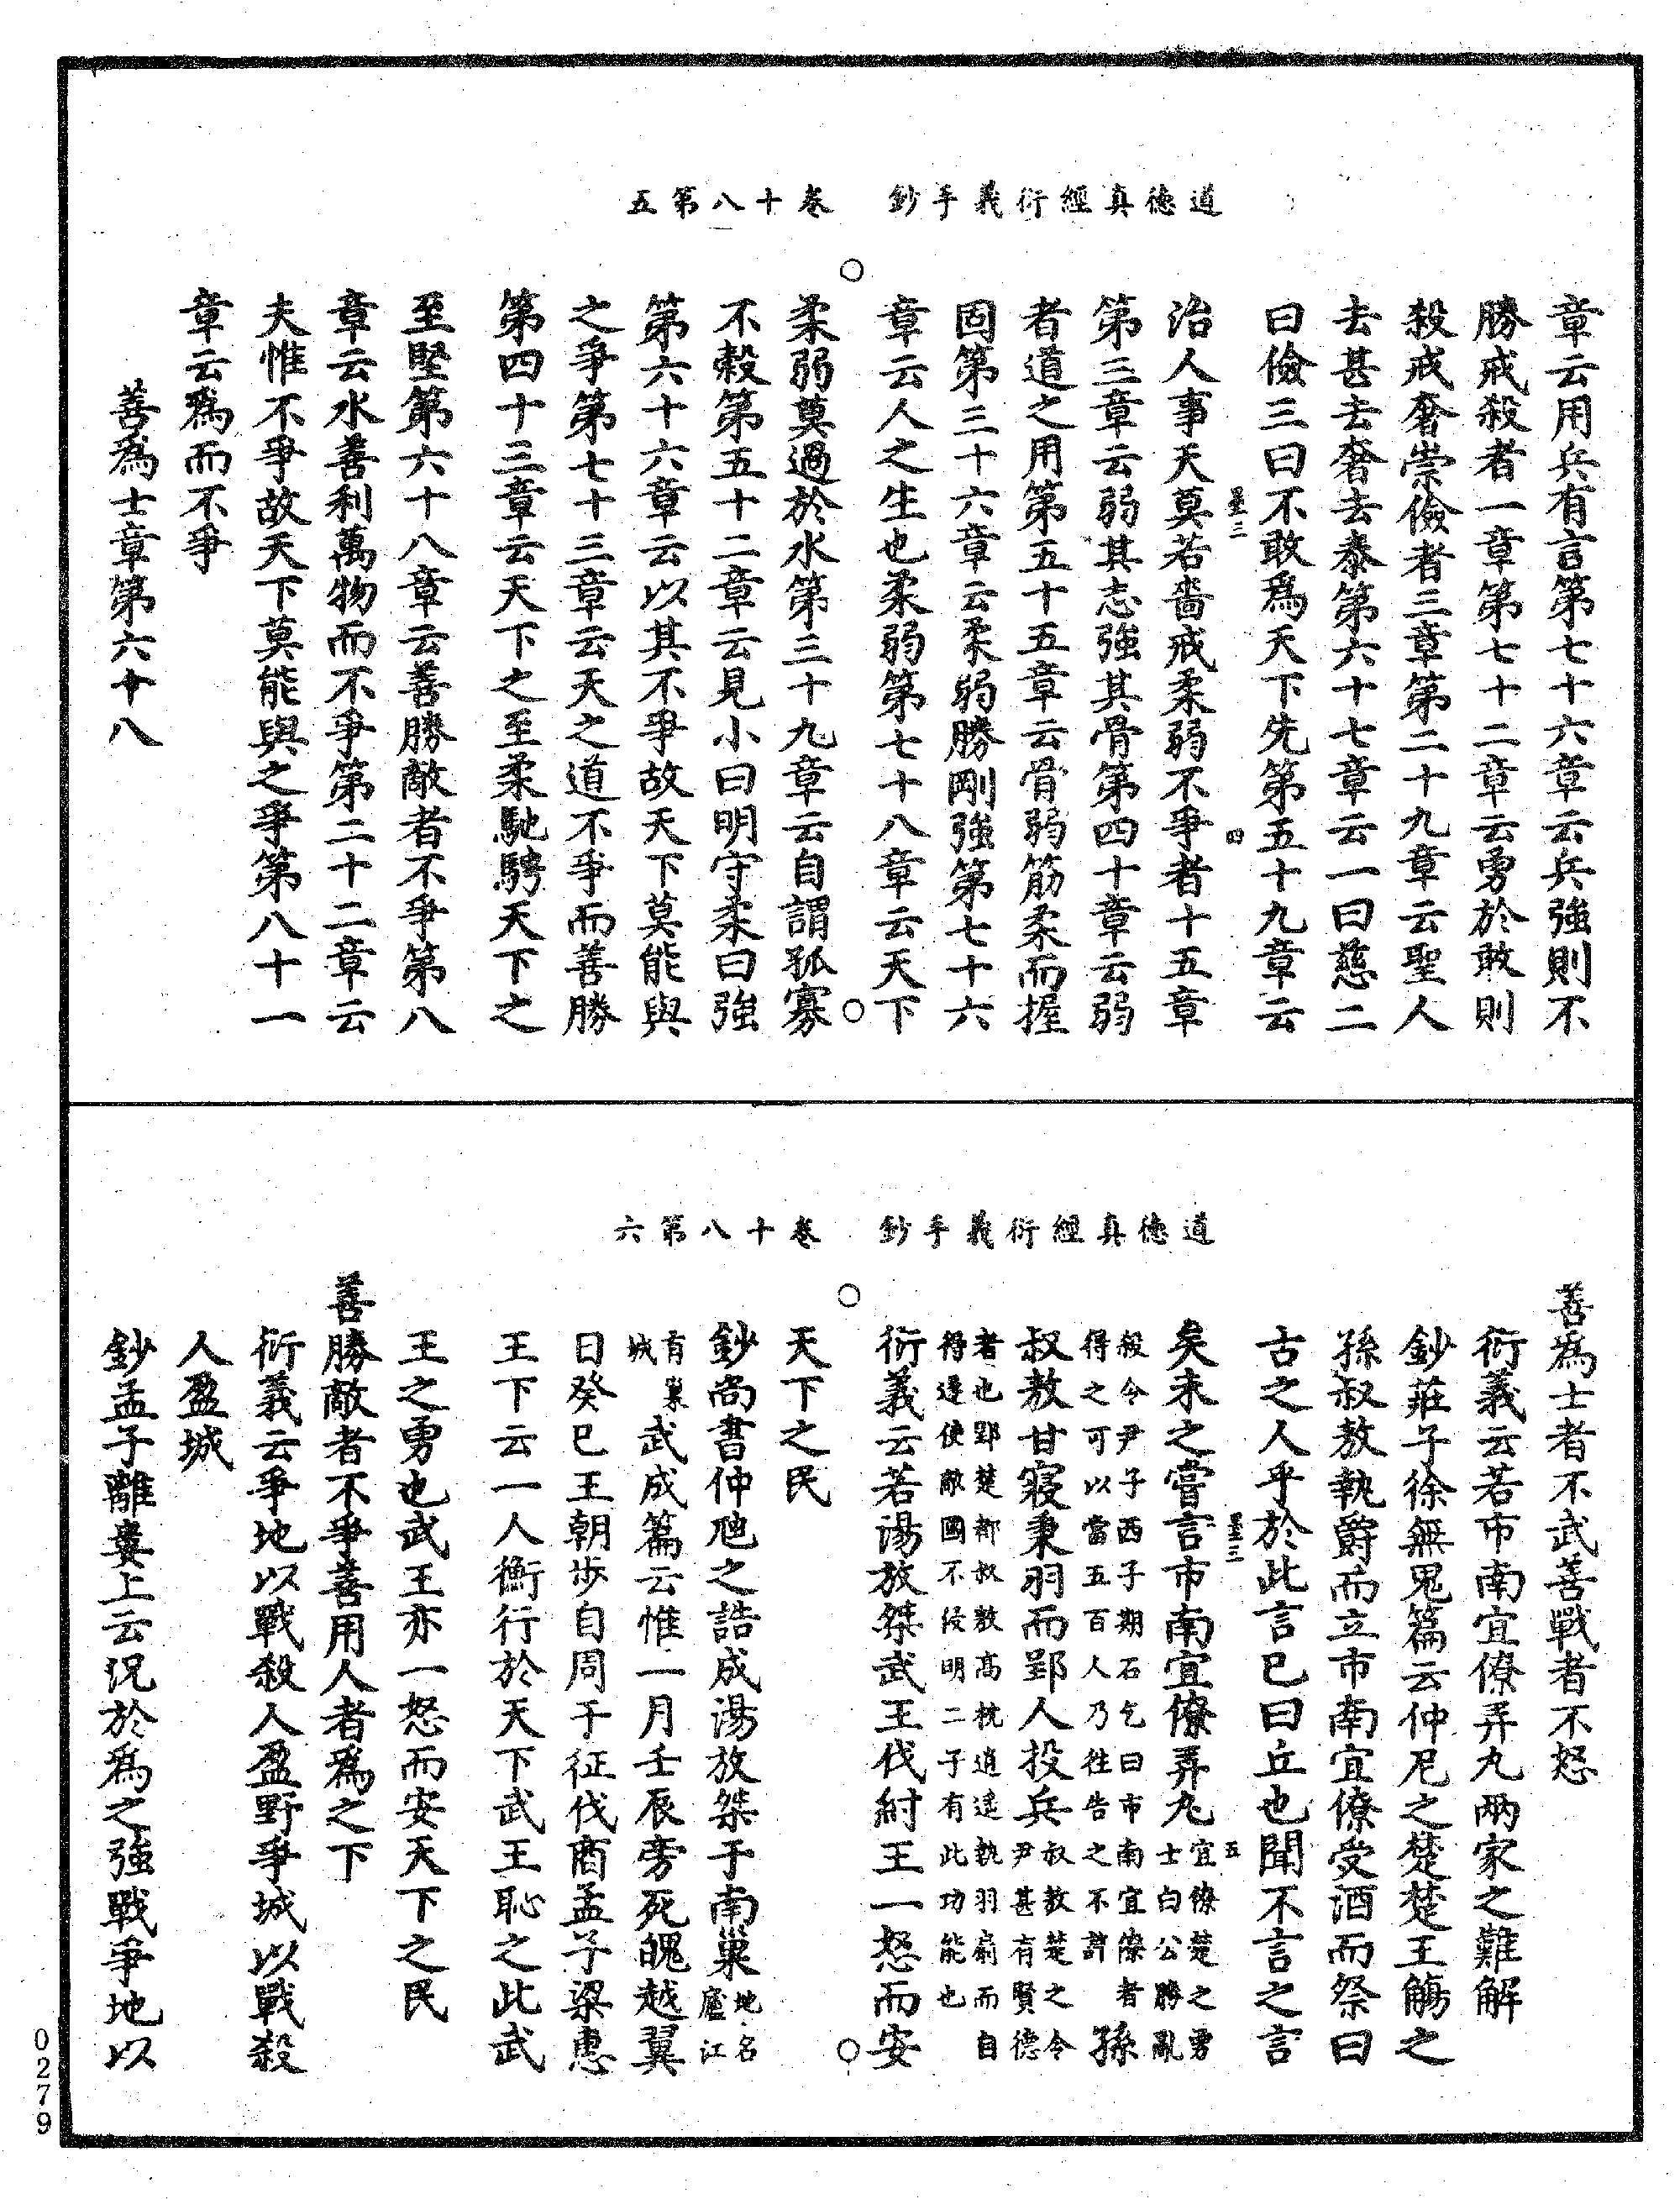 道德真經衍義手鈔　卷十八第五
章云用兵有言第七十六章云兵強則不
勝戒殺者一章第七十二章云勇於敢則
殺戒奢崇儉者三章第二十九章云聖人
去甚去奢去泰第六十七章云一曰慈二
曰儉三曰不敢爲天下先第五十九章云
四
治人事天莫若嗇戒柔弱不爭者十五章
第三章云弱其志強其骨第四十章云弱
者道之用第五十五章云骨弱筋柔而握
固第三十六章云柔弱勝剛強第七十六
章云人之生也柔弱第七十八章云天下
柔弱莫過於水第三十九章云自謂孤寡
不穀第五十二章云見小曰明守柔曰強
第六十六章云以其不爭故天下莫能與
之爭第七十三章云天之道不爭而善勝
第四十三章云天下之至柔馳騁天下之
至堅第六十八章云善勝敵者不爭第八
章云水善利萬物而不爭第二十二章云
夫惟不爭故天下莫能與之爭第八十一
章云爲而不爭
善爲士章第六十八
道德真經衍義手鈔　卷十八第六
善爲士者不武善戰者不怒
衍義云若市南宜僚弄丸兩家之難解
鈔莊子徐無鬼篇云仲尼之楚楚王觴之
孫叔敖執爵而立市南宜僚受酒而祭曰
古之人乎於此言已曰丘也聞不言之言
五
矣未之嘗言市南宜僚弄丸宜僚楚之勇士白公勝亂
殺令尹子西子期石乞曰市南宜僚者得之可以當五百人乃往告之不許孫
叔敖甘寢秉羽而郢人投兵叔敖楚之令尹甚有賢德
者也郢楚都叔敖高枕逍遙執羽扇而自得邊使敵國不侵明二子有此功能也
衍義云若湯放桀武王伐紂王一怒而安
天下之民
鈔尚書仲虺之誥成湯放桀于南巢地名廬江
有巢城武成篇云惟一月壬辰旁死魄越翼
日癸巳王朝步自周于征伐商孟子梁惠
王下云一人衡行於天下武王恥之此武
王之勇也武王亦一怒而安天下之民
善勝敵者不爭善用人者爲之下
衍義云爭地以戰殺人盈野爭城以戰殺
人盈城
鈔孟子離婁上云況於爲之強戰爭地以
0279